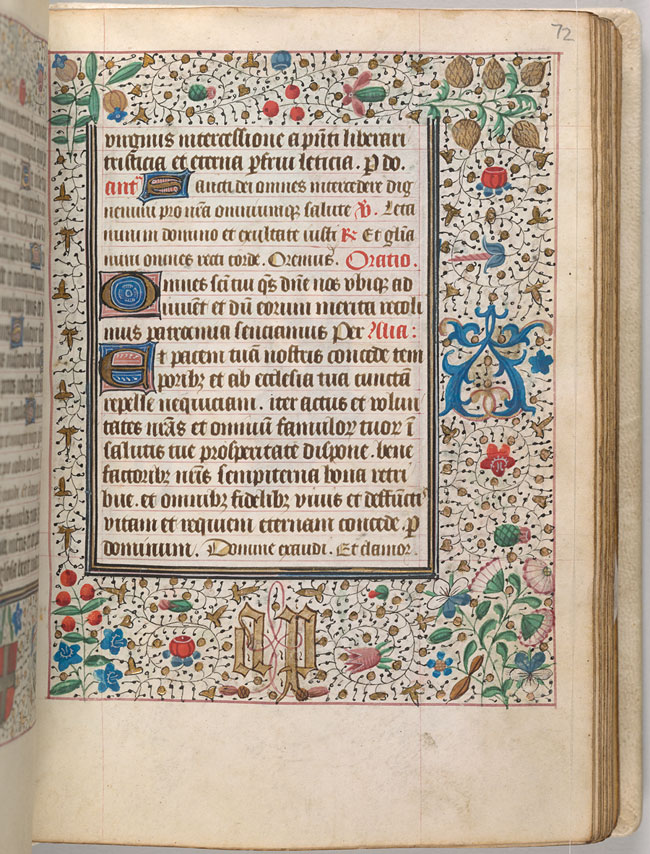 72
virginis intercessione a pñti liberari
tristicia et eterna ꝑfrui leticia. P do.
antͣ Sancti dei omnes intercedere dig
nemini pro nr̃a omniumqꝫ salute ℣. Leta
mini in domino et exultate iusti ℟ Et glͣia
mini omnes recti corde. Oremus. Oratio.
Omnes sc̃i tui qs̃ dñe nos vbique ad
iuuent et dũ eorum merita recoli
mus patrocinia senciamus Per Alia:
Et pacem tuã nostris concede tem
poribꝫ et ab ecclesia tua cunctã
repelle nequiciam. iter actus et volun
tates nr̃as et omniũ famulorꝫ tuorꝫ ĩ
salutis tue prosperitate dispone. bene
factoribꝫ nr̃is sempiterna bona retri
bue. et omnibꝫ fidelibꝫ viuis et deffunctis
vitam et requiem eternam concede. P
dominum. Domine exaudi. Et clamor.
ap